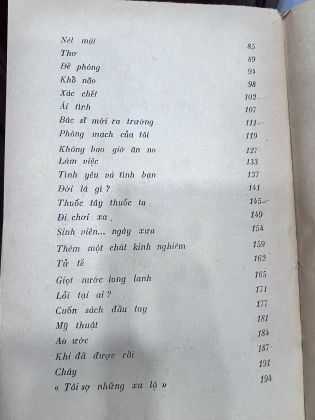 Nét mặt 85
Thơ 89
Đề phòng 94
Khổ não 98
Xác chết 102
Ái tình 107
Bác sĩ mới ra trường 111
Phòng mạch của tôi 119
Không bao giờ ăn no 127
Làm việc 133
Tình yêu và tình bạn 137
Đời là gì ? 141
Thuốc tây thuốc ta 145
Đi chơi xa 149
Sinh viên... ngày xưa 154
Thêm một chút kinh nghiệm 159
Tử tế 162
Giọt nước long lanh 165
Lỗi tại ai ? 171
Cuốn sách đầu tay 177
Mỹ thuật 181
Ao ước 184
Khi đã được rồi 187
Cháy 191
« Tôi sợ những xa lộ » 194